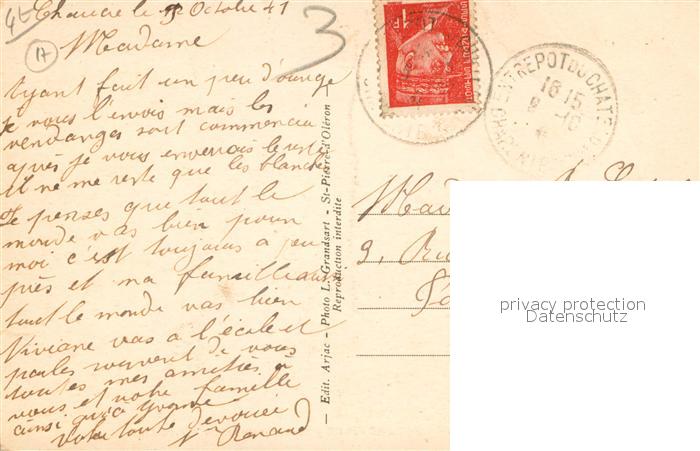 Chaucre le 9 Octobre 41
Madame
Ayant fait un peu d'
je vous l'envois mais les
vendanges sont commencer
après je vous enverrais le reste
il ne me reste que les blanches
Je penses que tout le
monde vas bien pour
moi c'est toujours a peu
près et ma famille aussi
tout le monde vas bien
Viviane vas a l'école et
parles souvent de vous
toutes mes amitiés a
vous et votre famille
ainsi qu'a Yvonne
Votre toute dévouée
Renaud
4E
A
3
— Edit. Arjac - Photo L. Grandsart - St-Pierre-d'Oléron -
Reproduction interdite
1F
ENTREPOT DU CHATEAU
16 15
9 -10
Mad
9, Ru
privacy protection
Datenschutz